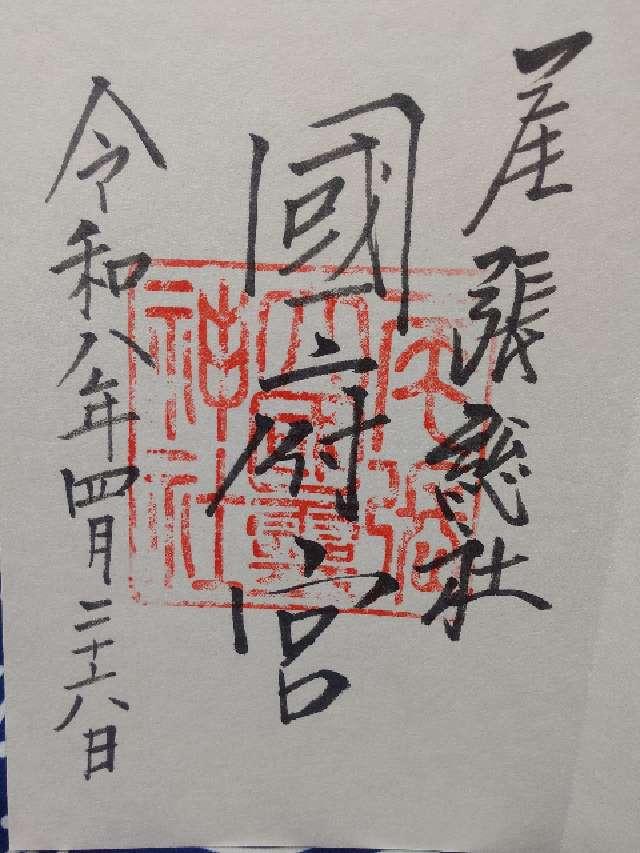 尾張総社
國府宮
令和八年四月二十六日
尾張
大國霊
神社